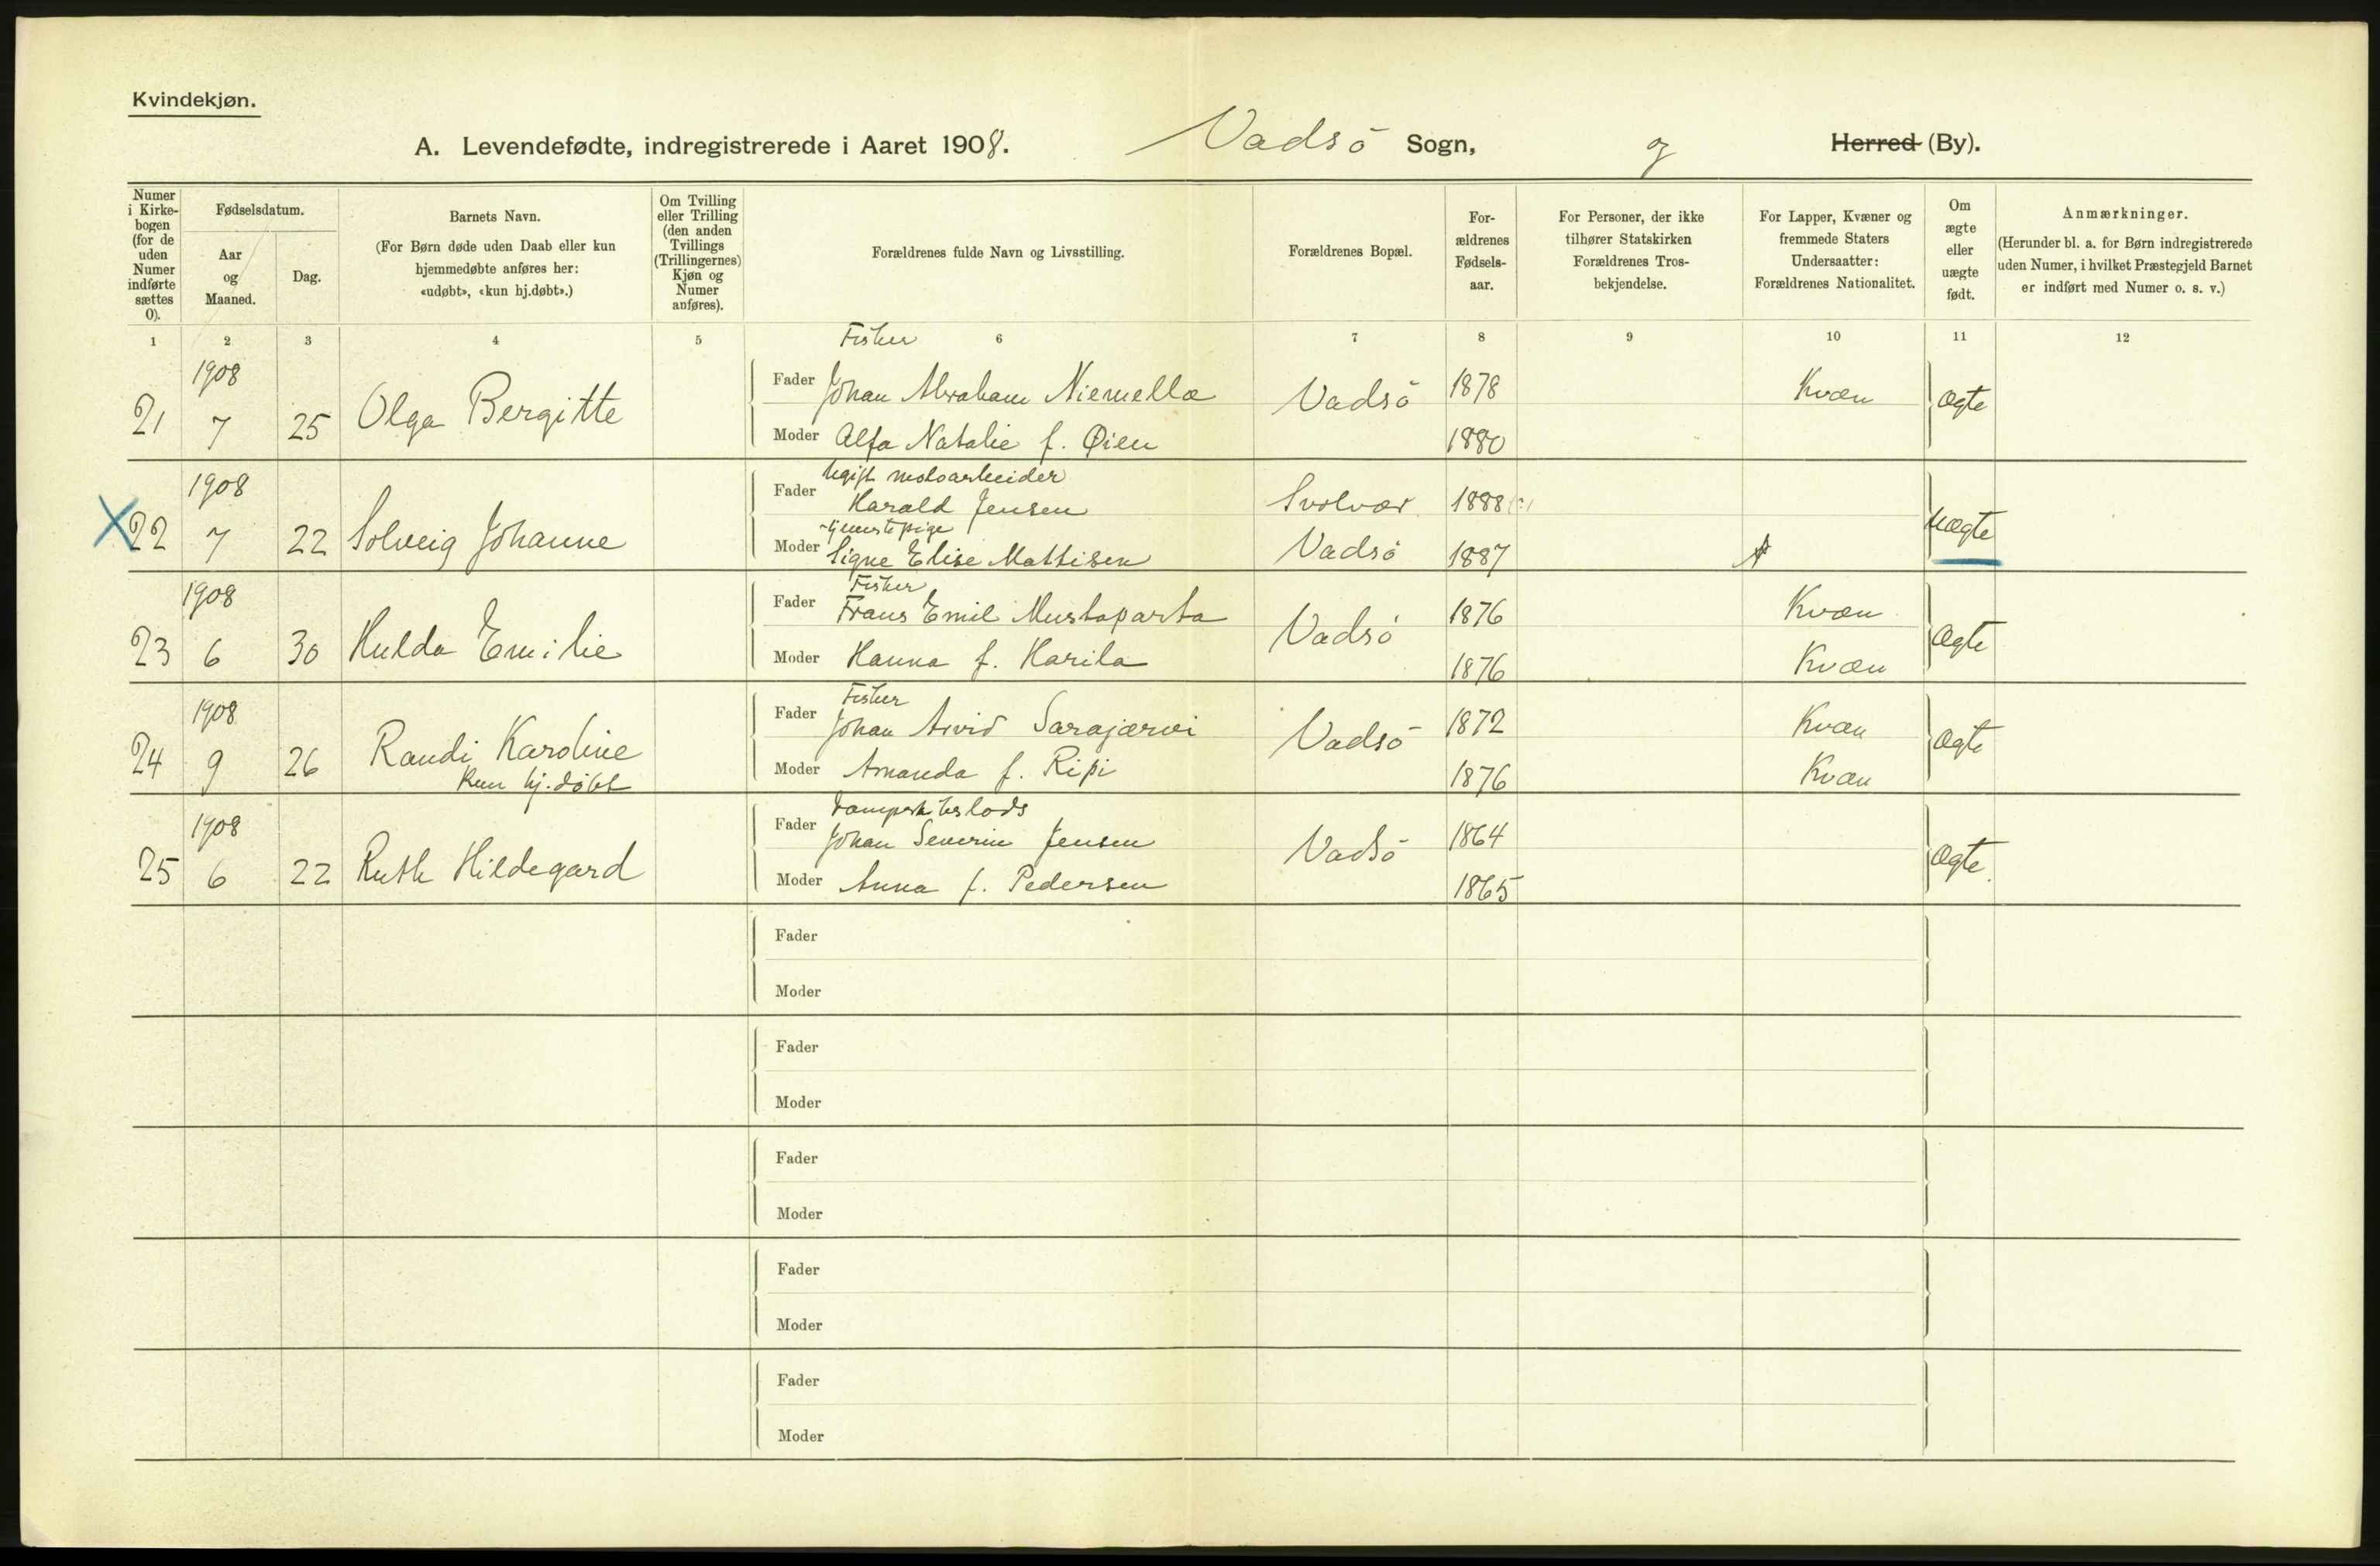 Kvindekjøn.
A. Levendefødte, indregistrerede i Aaret 1908. Vadsö Sogn, og Herred (By).
Numer i Kirkebogen (for de uden Numer indførte sættes 0).
Fødselsdatum.
Aar og Maaned.
Dag.
Barnets Navn.
(For Børn døde uden Daab eller kun hjemmedøbte anføres her: «udøbt», «kun hj.døbt».)
Om Tvilling eller Trilling (den anden Tvillings (Trillingernes) Kjøn og Numer anføres).
Forældrenes fulde Navn og Livsstilling.
Forældrenes Bopæl.
Forældrenes Fødselsaar.
For Personer, der ikke tilhører Statskirken Forældrenes Trosbekjendelse.
For Lapper, Kvæner og fremmede Staters Undersaatter: Forældrenes Nationalitet.
Om ægte eller uægte født.
Anmærkninger.
(Herunder bl. a. for Børn indregistrerede uden Numer, i hvilket Præstegjeld Barnet er indført med Numer o. s. v.)
1 2 3 4 5 6 7 8 9 10 11 12
Fisker
1908
21 7 25 Olga Bergitte Fader Johan Abraham Niemella Vadsö 1878 Kvæn Ægte
Moder Alfa Natalie f. Øien 1880
1908 Ugift motoarbeider
X 22 7 22 Solveig Johanne Fader Harald Jensen Svolvær 1888 Uægte
Tjenestepige
Moder Signe Elise Mattisen Vadsö 1887
Fisker
1908
23 6 30 Hulda Emilie Fader Frans Emil Mustaparta Vadsö 1876 Kvæn Ægte
Moder Hanna f. Harila 1876 Kvæn
Fisker
1908
24 9 26 Randi Karoline Fader Johan Arvid Sarajærvi Vadsö 1872 Kvæn Ægte
Kun hj.döbt Moder Amanda f. Ripi 1876 Kvæn
Dampskibslods
1908
25 6 22 Ruth Hildegard Fader Johan Severin Jensen Vadsö 1864 Ægte.
Moder Anna f. Pedersen 1865
Fader
Moder
Fader
Moder
Fader
Moder
Fader
Moder
Fader
Moder